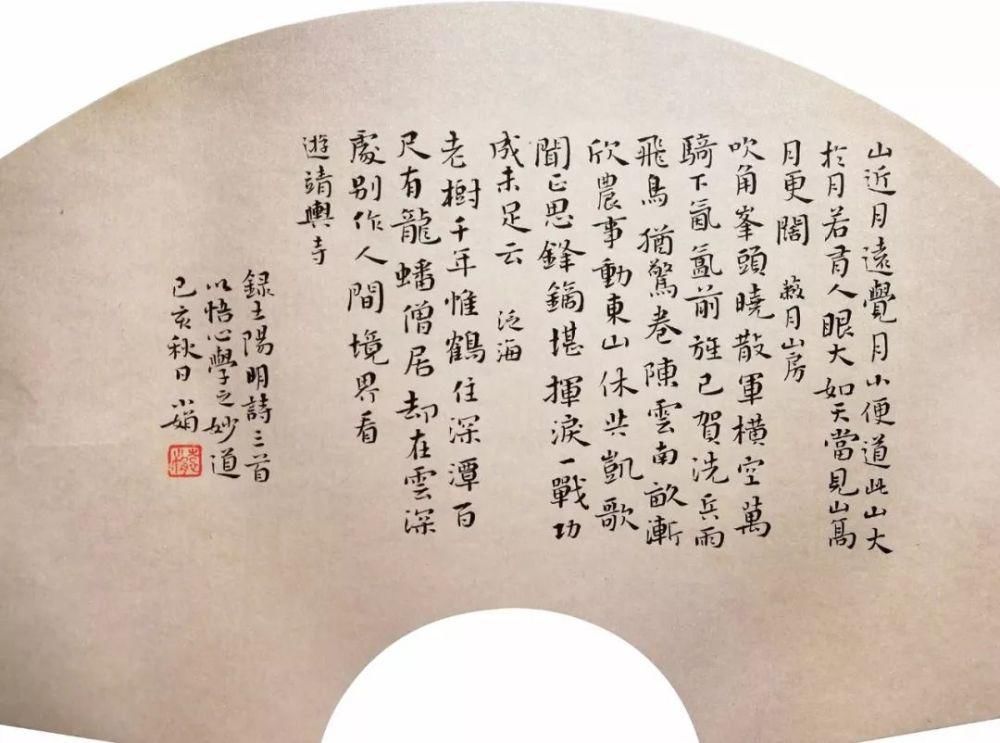 山近月遠覺月小便道此山大
於月若有人眼大如天當見山高
月更闊 蔽月山房
吹角峯頭曉散軍橫空萬
騎下氤氳前旌已賀洗兵雨
飛鳥猶驚卷陳雲南畝漸
欣農事動東山休共凱歌
聞正思鋒鏑堪揮淚一戰功
成未足云 泛海
老樹千年惟鶴住深潭百
尺有龍蟠僧居却在雲深
處別作人間境界看
遊靖興寺
錄王陽明詩三首
以悟心學之妙道
己亥秋日 小娟